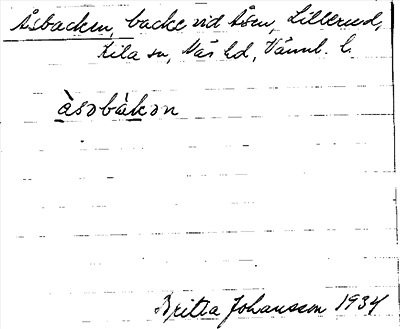 Åsbacken, backe vid Åsen, Lillerud,
Kila sn, Näs hd, Värml. l.
àsəbàkən
Britta Johansson 1934